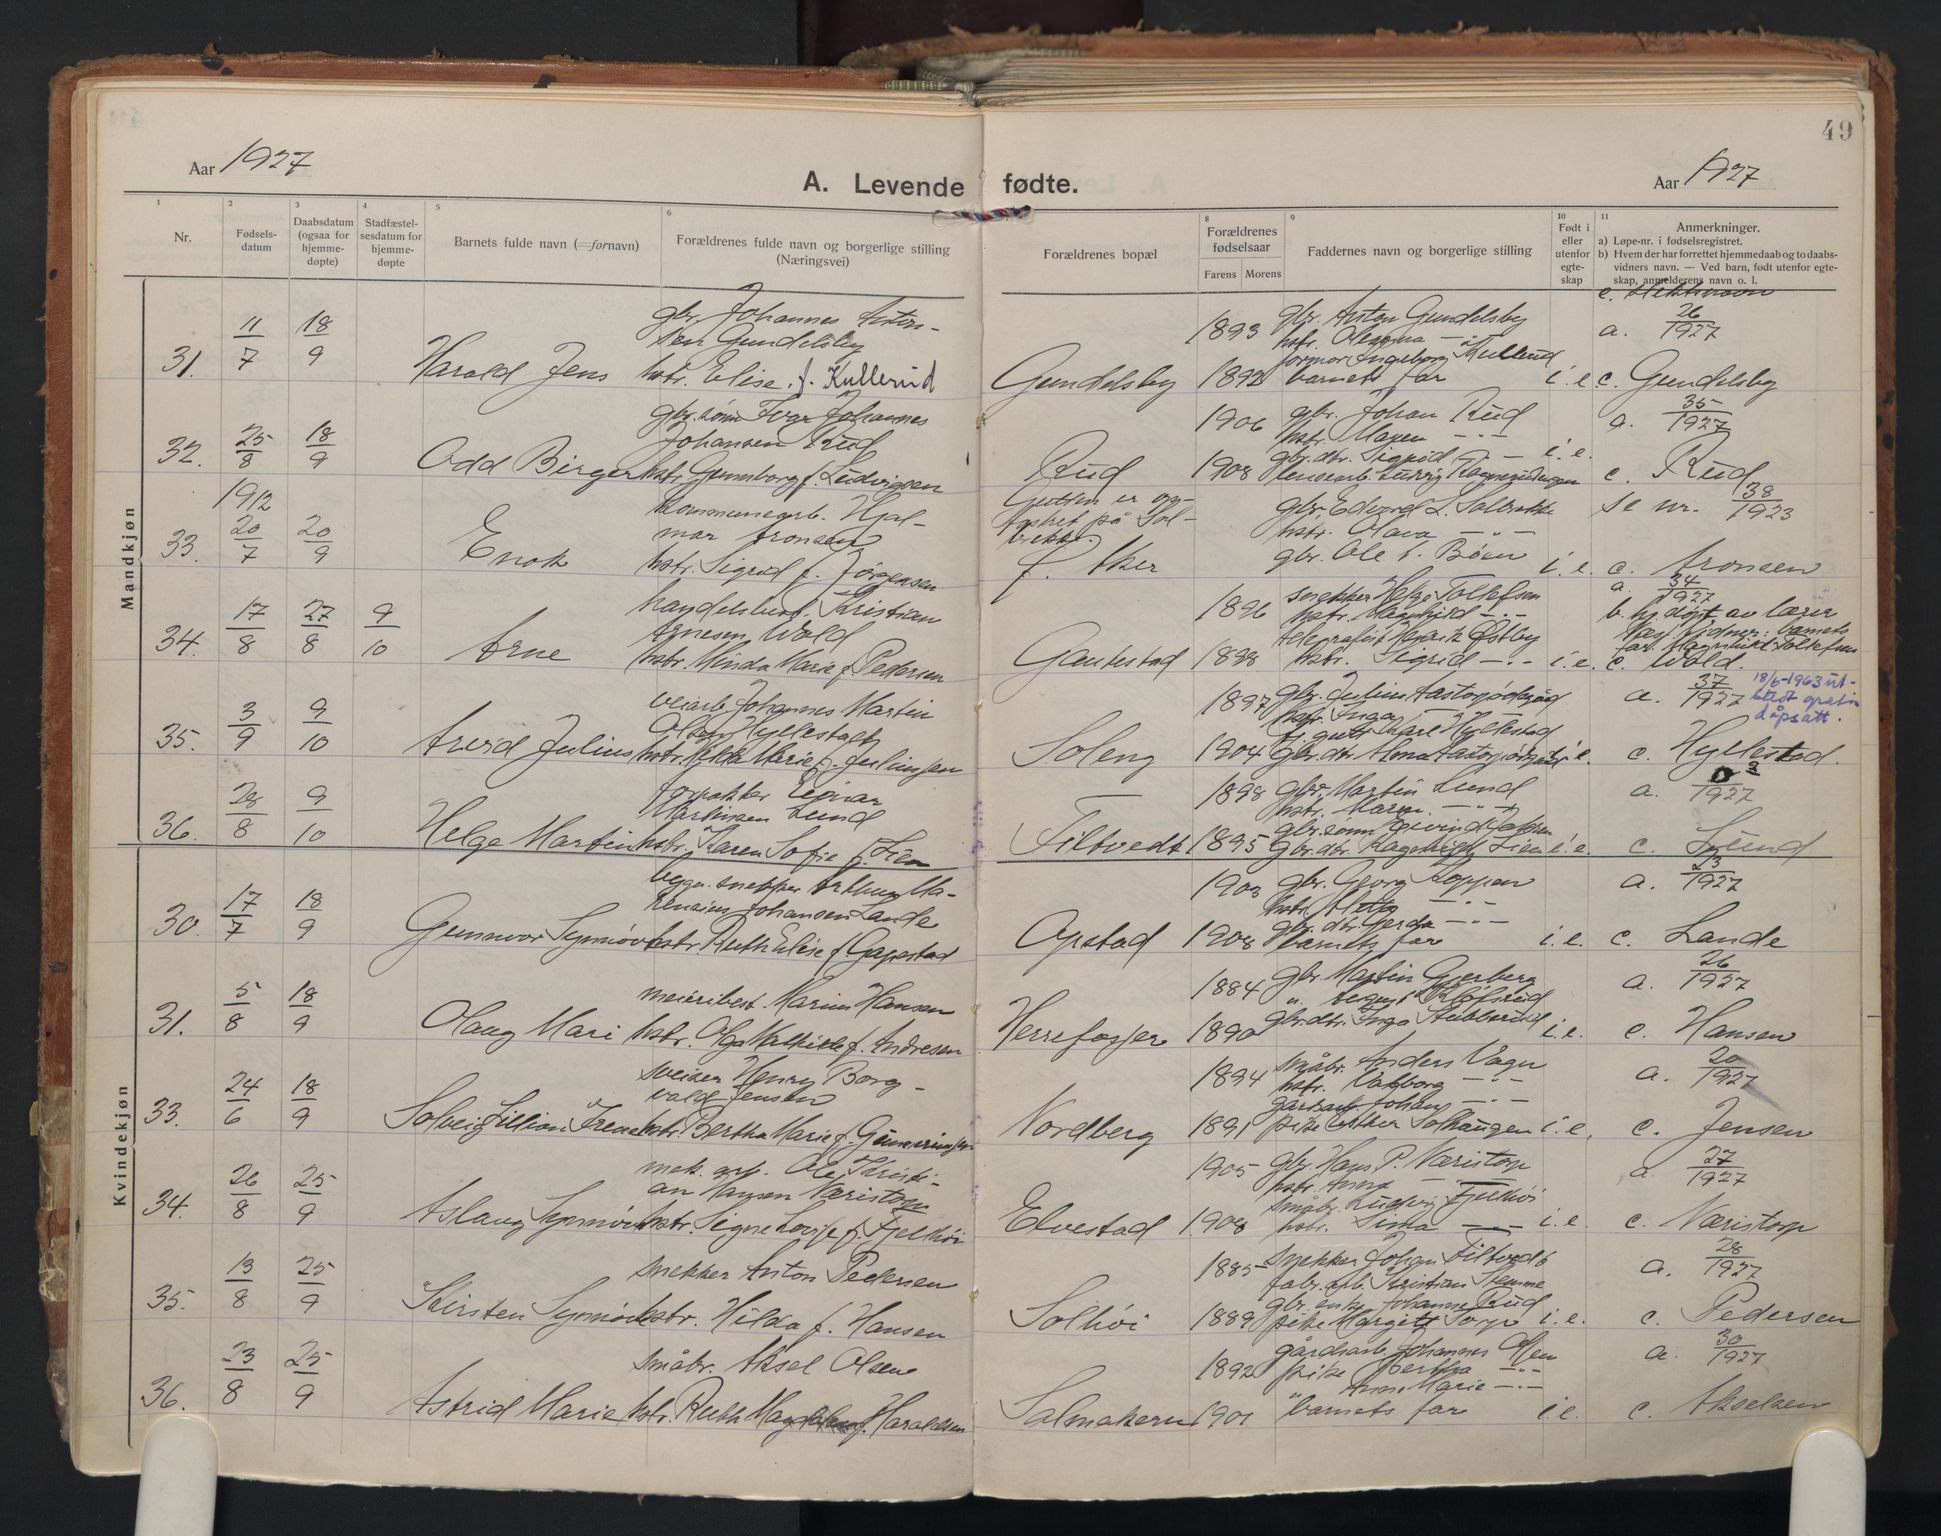 49
Aar 1927
A. Levende fødte.
Aar 1927
1 2 3 4 5 6 8 9 10 11
Nr.
Fødsels-
datum
Daabsdatum
(ogsaa for
hjemme-
døpte)
Stadfæstel-
sesdatum for
hjemme-
døpte
Barnets fulde navn (= fornavn)
Forældrenes fulde navn og borgerlige stilling
(Næringsvei)
Forældrenes bopæl
Forældrenes
fødselsaar
Farens Morens
Faddernes navn og borgerlige stilling
Født i
eller
utenfor
egte-
skap
Anmerkninger.
a) Løpe-nr. i fødselsregistret.
b) Hvem der har forrettet hjemmedaab og to daabs-
vidners navn. — Ved barn, født utenfor egte-
skap, anmelderens navn o. l.
c. Slektsnavn
Mandkjøn
31. 11/7 18/9 Harald Jens
gbr. Johannes Anton-
sen Gundelsby
hstr. Elise f. Kullerud
Gundelsby 1893 1892
gbr. Anton Gundelsby
hstr. Olegina — " —
formor Ingeborg Kullerud
barnets far
i.e.
a. 26/1927
c. Gundelsby
32. 25/8 18/9 Odd Birger
gbr. sønn Johannes
Johansen Rud
hstr. Gunnborg f. Ludvigsen
Rud 1906 1908
gbr. Johan Rud
hstr. Maren — " —
gbr. dtr. Sigrid — " —
i.e.
a. 35/1927
c. Rud
33. 1912 20/7 20/9 Enok
kommunearb. Hjal-
mar Aronsen
hstr. Sigrid f. Jørgensen
Gutten er opp-
fostret på Sol-
brekke
f. Aker
gbr. Edvard L. Solbrekke
hstr. Olava — " —
gbr. Ole Bøen
i.e.
se nr. 38/1923
c. Aronsen
34. 17/8 27/8 9/10 Arne
handelsbest. Kristian
Arnesen Wold
hstr. Minda Marie f. Pedersen
Gautestad 1896 1898
snekker Helge Tollefsen
hstr. Magnhild — " —
telegrafist Henrik Østby
hstr. Sigrid — " —
i.e.
a. 34/1927
b. hj. døpt av lærer
far. Magnhild Tollefsen
c. Wold.
35. 3/9 9/10 Arvid Julius
veiarb. Johannes Martin
Olsen Hyllestad
hstr. Hilda Marie f. Juliussen
Soleng 1897 1904
gbr. Julius
hstr. Inga
gutt Kåre Hyllestad
gbr. dtr. Alma
i.e.
a. 37/1927
18/6-1963 ut-
stedt gratis
dåpsatt.
c. Hyllestad.
36. 28/8 9/10 Helge Martin
forpakter Einar
Martinsen Lund
hstr. Karen Sofie f. Lien
Filtvedt 1898 1895
gbr. Martin Lund
hstr. Maren — " —
gbr. sønn Eivind
gbr. dtr. Ragnhild Lien
i.e.
a. 1927
c. Lund
Kvindekjøn
30. 17/7 18/9 Gunnvor Synnøve
bygn. snekker Arthur Ma-
rensius Johansen Lande
hstr. Ruth Elise f. Gapestad
Opstad 1903 1908
gbr. Georg Koppen
hstr.
gbr. dtr. Gerda — " —
barnets far
i.e.
a. 23/1927
c. Lande
31. 5/8 18/9 Olaug Mari
meieribest. Marius Hansen
hstr. Olga Mathilde f. Andresen
Herrefosser 1884 1890
gbr. Martin Gjerberg
gbr. dtr. Inga Stubberud
i.e.
a. 26/1927
c. Hansen
33. 24/6 18/9 Solveig Lillian Irene
sveiser Henry Borg-
vald Jensen
hstr. Bertha Marie f. Gunneriussen
Nordberg 1894 1891
småbr. Anders Vagn
hstr. Valborg — " —
gårdsarb. Johan — " —
pike Esther Solhaugen
i.e.
a. 20/1927
c. Jensen
34. 26/8 25/9 Aslaug Synnøve
mek. arb. Ole Kristi-
an Hansen Næristorp
hstr. Signe Lovise f. Fjelhøi
Elvestad 1905 1908
gbr. Hans P. Næristorp
hstr. Anna — " —
småbr. Ludvig Fjelhøi
hstr. Sina — " —
i.e.
a. 27/1927
c. Næristorp
35. 13/8 25/9 Kirsten Synnøve
snekker Anton Pedersen
hstr. Hilda f. Hansen
Solhøi 1885 1889
snekker Johan Filtvedt
fabr. arb. Kristian Hemme
gbr. enke Johanne Rud
pike Margit Torp
i.e.
a. 28/1927
c. Pedersen
36. 23/8 25/9 Astrid Marie
småbr. Aksel Olsen
hstr. Ruth Magdalena f. Haraldsen
Salmakern 1892 1901
gårdsarb. Johannes Olsen
pike Bertha — " —
" Anna Marie — " —
barnets far
i.e.
a. 30/1927
c. Akselsen